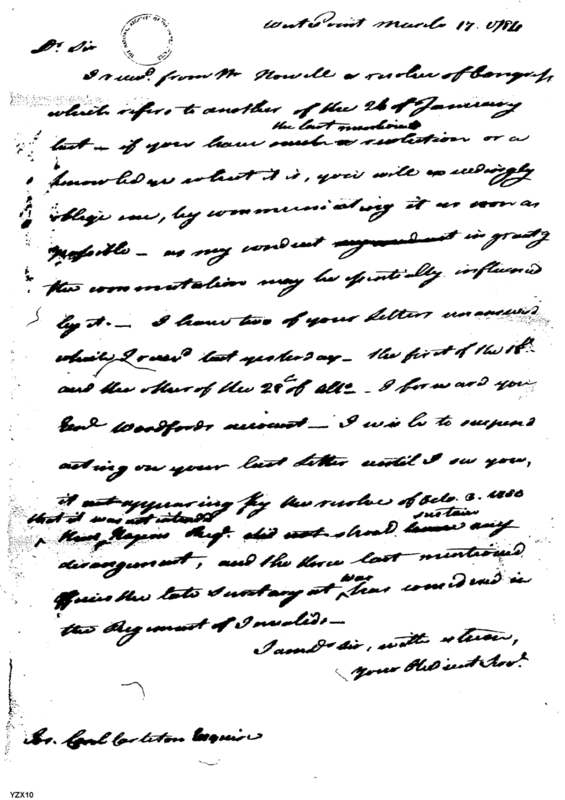 West Point March 17. 1784
Dr Sir
I recd. from Mr Howell a resolve of Congress
which refers to another of the 26 of January
last – if you have such a resolution or a
the last mentioned
knowledge what it is, you will exceedingly
oblige me, by communicating it as soon as
possible – as my conduct in grantg
the commutation may be essentially influenced
by it. – I have two of your letters unanswered
which I recd last yesterday – the first of the 18th.
and the other of the 28th of ulto – I forward you
Genl Woodfords account – I wish to suspend
acting on your last letter until I see you,
it not appearing by the resolve of Octo. 3. 1780
that it was not intended
Hazens Regt. did not should sustain any
derangement, and the three last mentioned
officers the late Secretary at war has considered in
the Regiment of Invalids –
I am dr sir, with esteem,
your Obedient Servt.
Jos. Carleton Esquire
YZX10